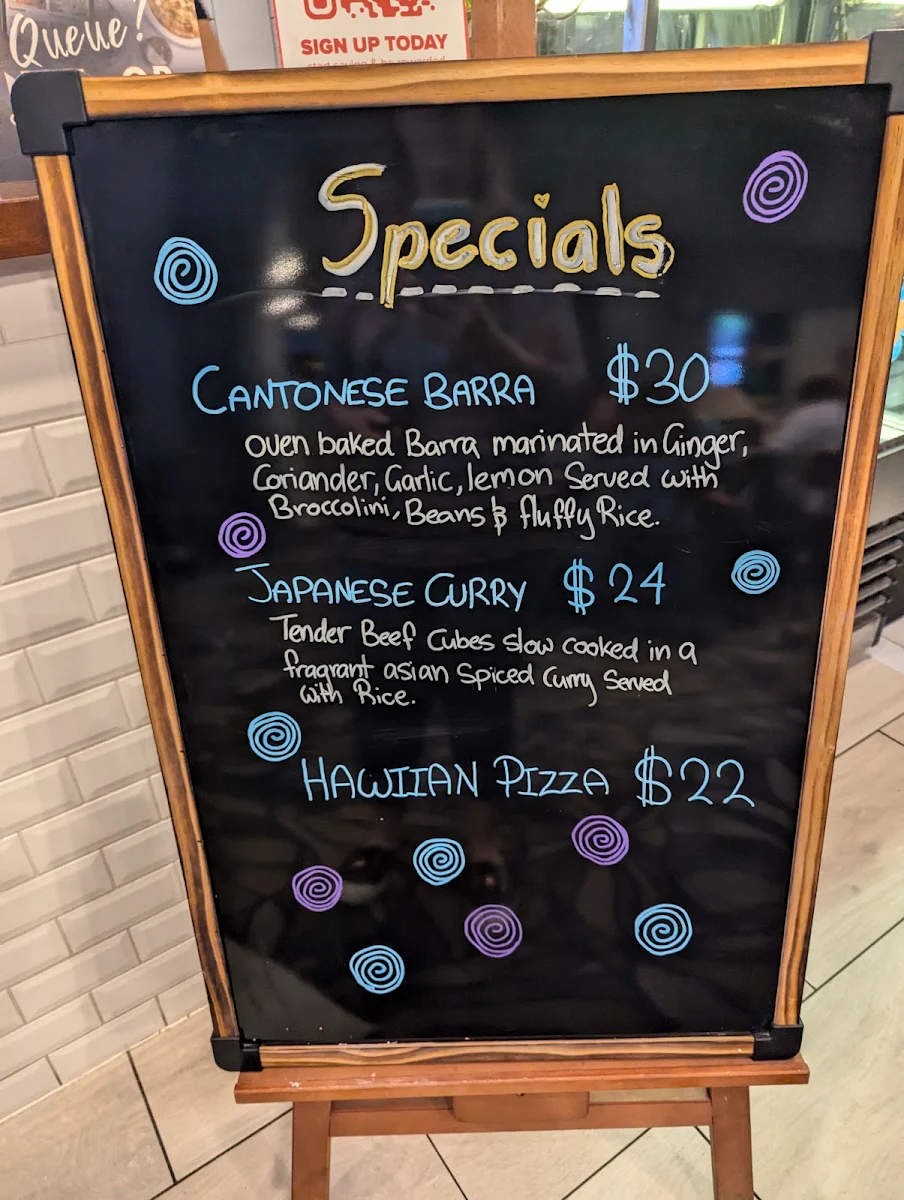 Queue?
SIGN UP TODAY
start saving & be rewarded
Specials
CANTONESE BARRA $30
oven baked Barra marinated in Ginger,
Coriander, Garlic, lemon Served with
Broccolini, Beans & fluffy Rice.
JAPANESE CURRY $24
Tender Beef Cubes slow cooked in a
fragrant asian Spiced Curry Served
with Rice.
HAWIIAN PIZZA $22